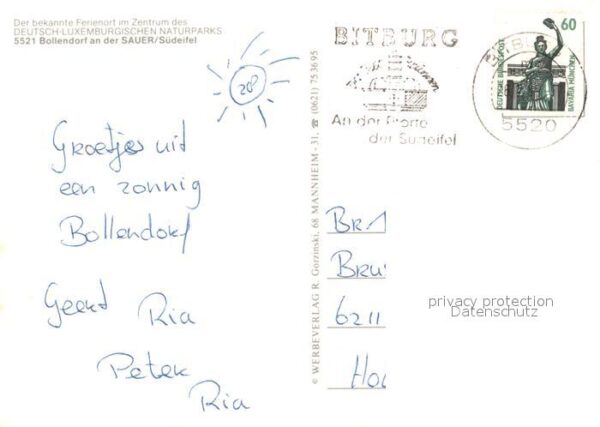 Der bekannte Ferienort im Zentrum des
DEUTSCH-LUXEMBURGISCHEN NATURPARKS
5521 Bollendorf an der SAUER/Südeifel
28°
Groetjes uit
een zonnig
Bollendorf
Geert Ria
Peter
Ria
© WERBEVERLAG R. Gorzinski, 68 MANNHEIM-31, ☎ (0621) 753695
BITBURG
An der Pforte
der Südeifel
5520
60
DEUTSCHE BUNDESPOST
BAVARIA MÜNCHEN
Br
Bru
6211
Ho
privacy protection
Datenschutz